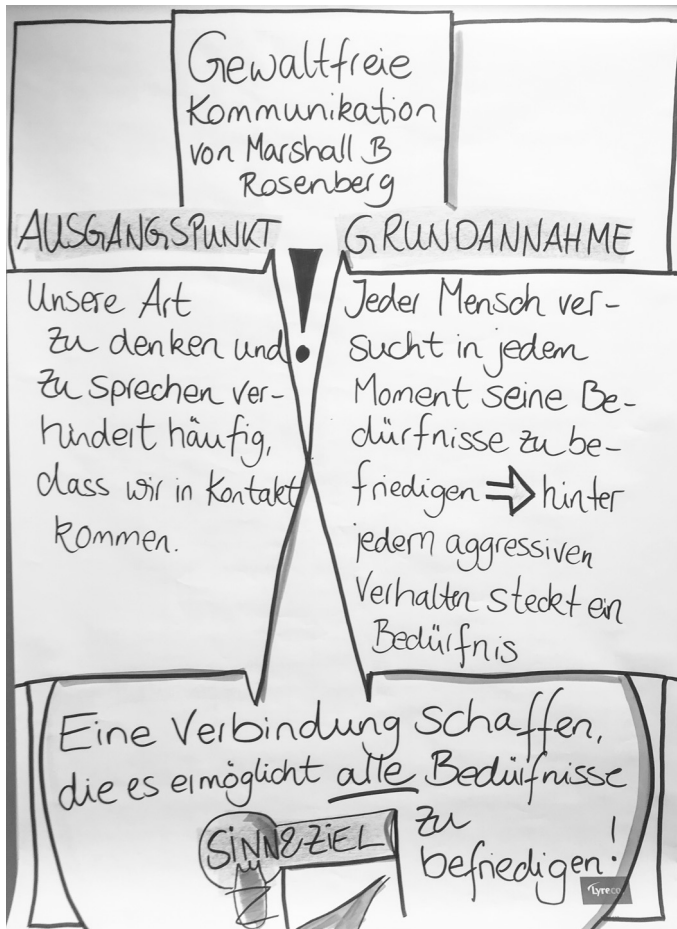 Gewaltfreie
Kommunikation
von Marshall B
Rosenberg
AUSGANGSPUNKT
Unsere Art
zu denken und
zu sprechen ver-
hindert häufig,
dass wir in Kontakt
kommen.
GRUNDANNAHME
Jeder Mensch ver-
sucht in jedem
Moment seine Be-
dürfnisse zu be-
friedigen ⇨ hinter
jedem aggressiven
Verhalten steckt ein
Bedürfnis
!
Eine Verbindung schaffen,
die es ermöglicht alle Bedürfnisse
zu
befriedigen!
SINN & ZIEL
Lyreco